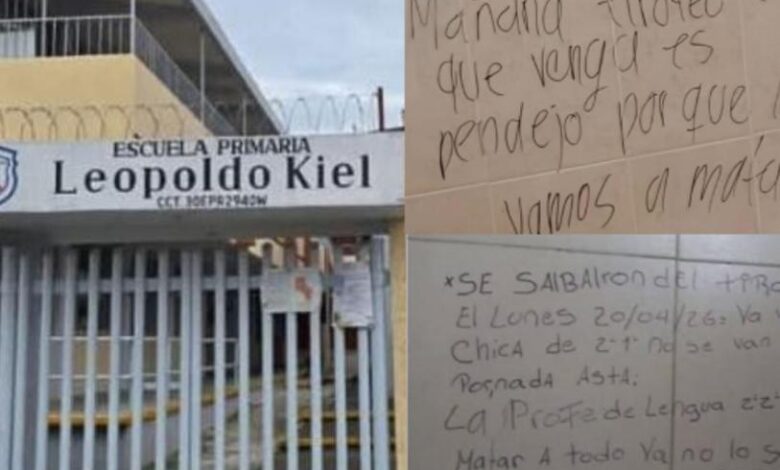 ESCUELA PRIMARIA
Leopoldo Kiel
CCT. 30EPR2940W
Mañana tiroteo
que venga es
pendejo porque
vamos a mata
*SE SAlBAIron dEL tiro
El Lunes 20/04/26. Ya v
CHICA de 2-1° no se van
Poçnada AstA:
LA Profe de Lengua 2-2
Matar A todo Ya no lo s